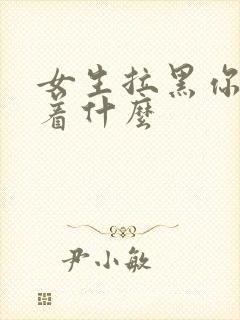 女生拉黑你
着什麼
尹小敏